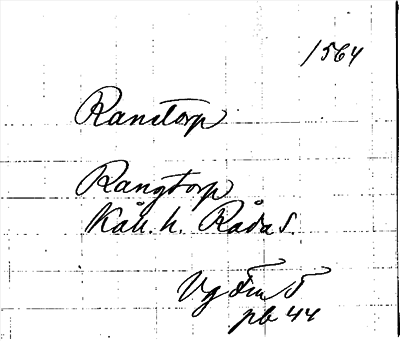 1564
Ranstorp
Rangtorp
Kåll. h. Råda s.
Vg Fru 5
pb 44